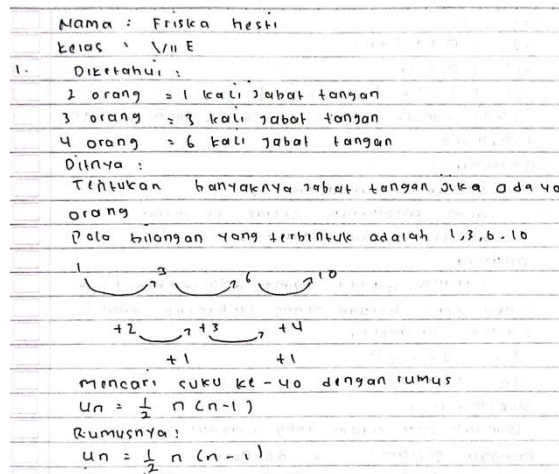 Nama : Friska hesti
Kelas : VII E
1. Diketahui :
2 orang = 1 kali jabat tangan
3 orang = 3 kali jabat tangan
4 orang = 6 kali jabat tangan
Ditnya :
Tentukan banyaknya jabat tangan jika ada 40
orang
Pola bilangan yang terbintuk adalah 1,3,6.10
1 3 6 10
+2 +3 +4
+1 +1
mencari suku ke-40 dengan rumus
Un = 1/2 n (n-1)
Rumusnya :
Un = 1/2 n (n-1)